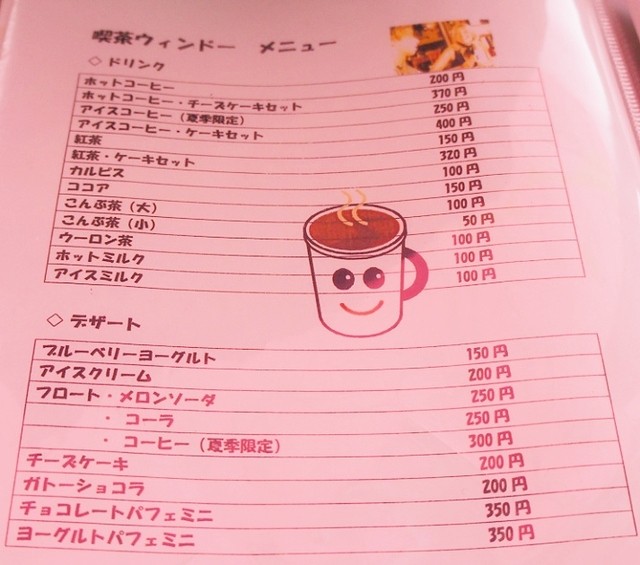 喫茶ウィンドー　メニュー
◇ドリンク
ホットコーヒー 200円
ホットコーヒー・チーズケーキセット 370円
アイスコーヒー（夏季限定） 250円
アイスコーヒー・ケーキセット 400円
紅茶 150円
紅茶・ケーキセット 320円
カルピス 100円
ココア 150円
こんぶ茶（大） 100円
こんぶ茶（小） 50円
ウーロン茶 100円
ホットミルク 100円
アイスミルク 100円
◇デザート
ブルーベリーヨーグルト 150円
アイスクリーム 200円
フロート・メロンソーダ 250円
・コーラ 250円
・コーヒー（夏季限定） 300円
チーズケーキ 200円
ガトーショコラ 200円
チョコレートパフェミニ 350円
ヨーグルトパフェミニ 350円